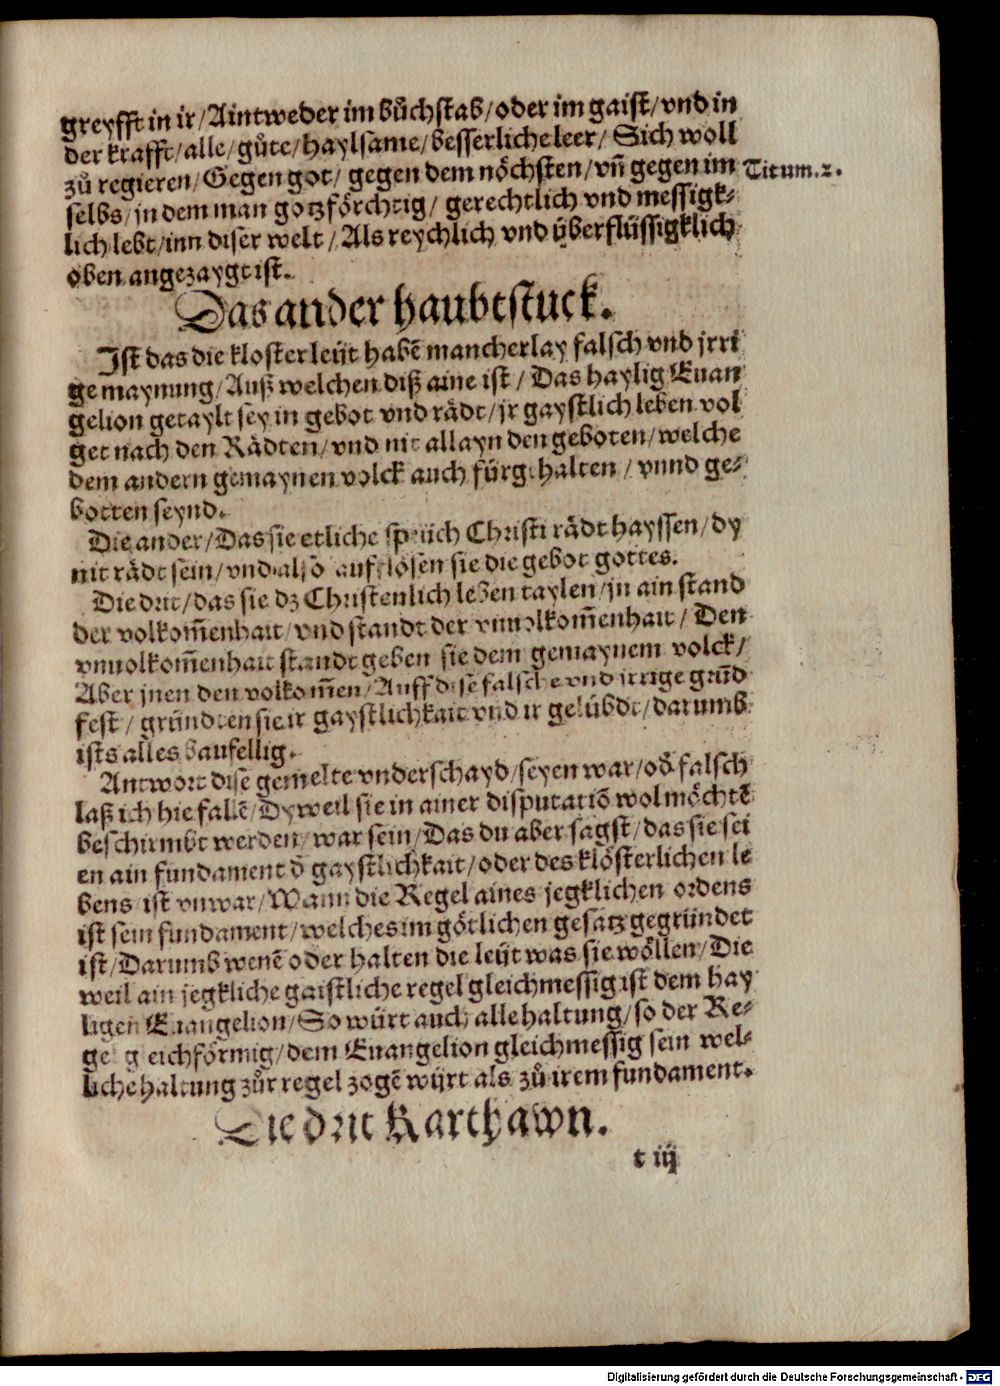 greyfft in ir / Aintweder im bůchstab / oder im gaist / vnd in
der krafft / alle / gůte / haylsame / besserliche leer / Sich woll
zů regieren / Gegen got / gegen dem nöchsten / vñ gegen im
Titum.2.
selbs / in dem man gotzförchtig / gerechtlich vnd messigk⸗
lich lebt / inn diser welt / Als reychlich vnd überflüssigklich
oben angezaygt ist.
Das ander haubtstuck.
Ist das die klosterleüt habẽ mancherlay falsch vnd jrri
ge maynung / Auß welchen diß aine ist / Das haylig Euan
gelion getaylt sey in gebot vnd rädt / jr gaystlich leben vol
get nach den Rädten / vnd nit allayn den geboten / welche
dem andern gemaynen volck auch fürgehalten / vnnd ge⸗
botten seynd.
Die ander / Das sie etliche sprüch Christi rädt hayssen / dy
nit rädt sein / vnd also auflösen sie die gebot gottes.
Die drit / das sie dz Christenlich leben taylen / in ain stand
der volkom̃enhait / vnd standt der vnuolkom̃enhait / Den
vnuolkom̃enhait standt geben sie dem gemaynem volck /
Aber jnen den volkom̃en / Auff dise falsche vnd irrige grũd
fest / gründten sie ir gaystlichkait vnd ir gelübdt / darumb
ists alles baufellig.
Antwort dise gemelte vnderschayd / seyen war / od̃ falsch
laß ich hie fallẽ / Dyweil sie in ainer disputatiõ wol möchtẽ
beschirmbt werden / war sein / Das du aber sagst / das sie sei
en ain fundament d̃ gaystlichkait / oder des klösterlichen le
bens / ist vnwar / Wann die Regel aines jegklichen ordens
ist sein fundament / welches im götlichen gesatz gegründet
ist / Darumb wenẽ oder halten die leüt was sie wöllen / Die
weil ain jegkliche gaistliche regel gleichmessig ist dem hay
ligen Euangelion / So würt auch alle haltung / so der Re⸗
gel gleichförmig / dem Euangelion gleichmessig sein wel⸗
liche haltung zůr regel zogẽ wirt als zů irem fundament.
Die drit Karthawn.
t iij
Digitalisierung gefördert durch die Deutsche Forschungsgemeinschaft - DFG